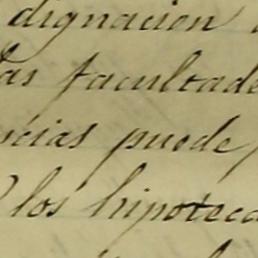 dignacion
las facultade
ncias puede
los hipoteca